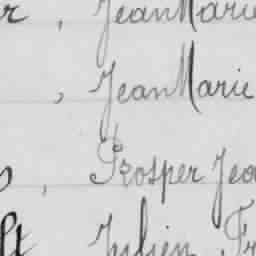 r, Jean Marie
, Jean Marie
, Prosper Jea
lt Julien Fr